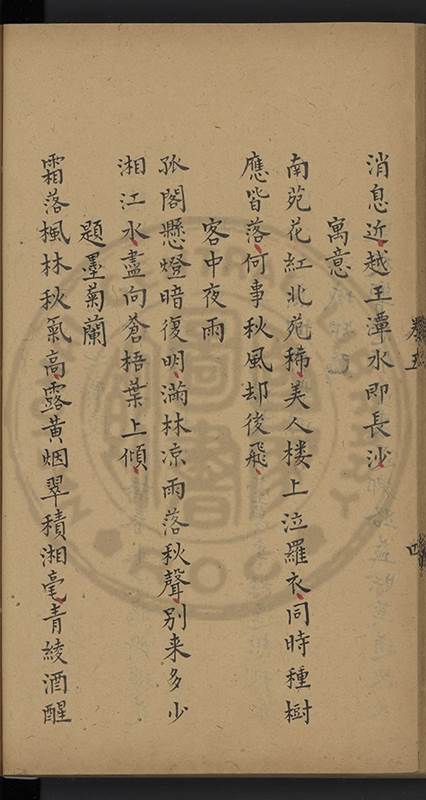 消息近越王潭水即長沙
寓意
南苑花紅北苑稀美人樓上泣羅衣同時種樹
應皆落何事秋風却後飛
客中夜雨
孤閣懸燈暗復明滿林凉雨落秋聲别来多少
湘江水盡向蒼梧葉上傾
題墨菊蘭
霜落楓林秋氣高露黄烟翠積湘毫青綾酒醒